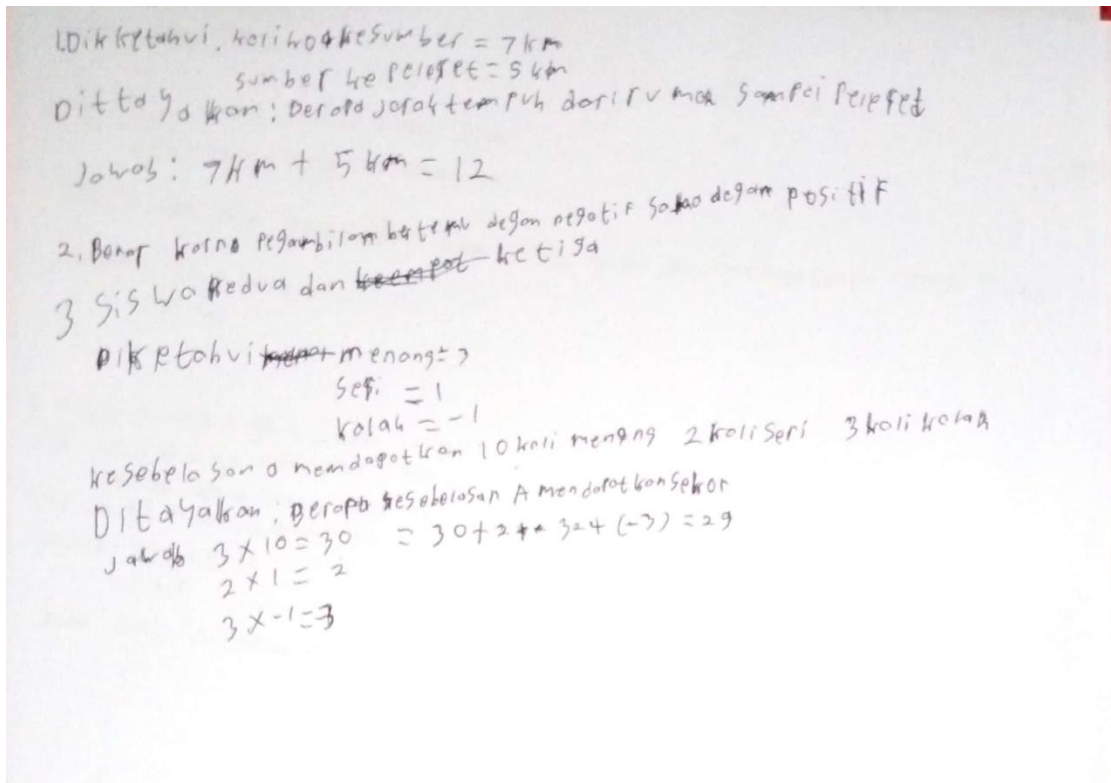 1. Dik ketahui, kaliwo4 ke Sumber = 7 km
Sumber ke Peleset = 5 km
Dittayakan: Berapa jarak tempuh dari rumah sampai Peleset
Jawab: 7 km + 5 km = 12
2. Benar karna pegambilan bertemu degan negatif sama degan positif
3 Siswa kedua dan ketiga
Diketahui menang = 3
Seri = 1
kalah = -1
kesebelasan a mendapatkan 10 kali menang 2 kali Seri 3 kali kalah
Ditayakan: Berapa kesebelasan A mendapatkan sekor
Jawab 3 x 10 = 30 = 30 + 2 + (-3) = 29
2 x 1 = 2
3 x -1 = -3